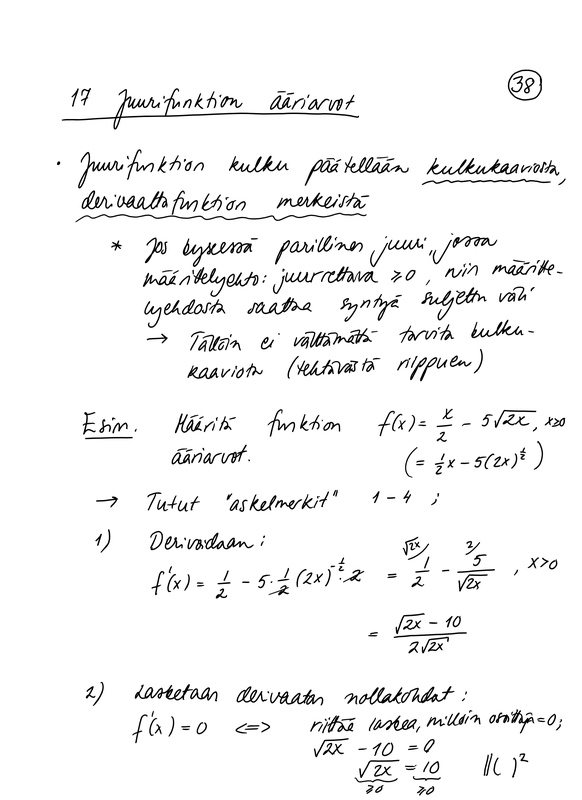 38
17 Juurifunktion ääriarvot
· Juurifunktion kulku päätellään kulkukaaviosta,
derivaattafunktion merkeistä
* Jos kyseessä parillinen juuri, jossa
määrittelyehto: juurrettava ≥0, niin määritte-
lyehdosta saattaa syntyä suljettu väli
→ Tällöin ei välttämättä tarvita kulku-
kaaviota (tehtävästä riippuen)
Esim. Määritä funktion f(x) = x/2 - 5√2x, x≥0
ääriarvot. (= 1/2x - 5(2x)^1/2)
→ Tutut "askelmerkit" 1-4 ;
1) Derivoidaan:
f'(x) = 1/2 - 5·1/2(2x)^-1/2·2 = √2x) 1/2 - 2) 5/√2x , x>0
= √2x - 10 / 2√2x
2) Lasketaan derivaatan nollakohdat:
f'(x) = 0 <=> riittää laskea, milloin osoittaja=0;
√2x - 10 = 0
√2x = 10 ||( )²
≥0 ≥0